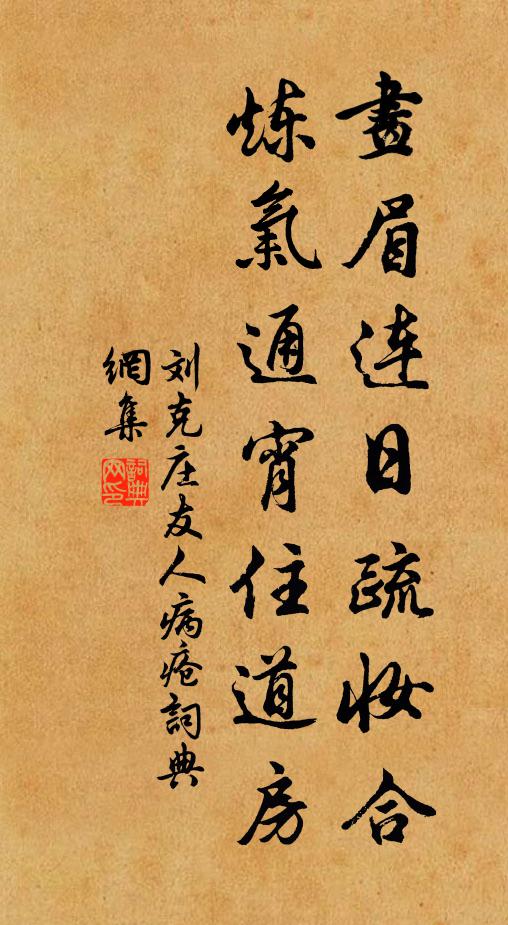 畫眉连日疏妆合
炼氣通宵住道房
刘克庄友人病疮詞典
網集
詞典
网印